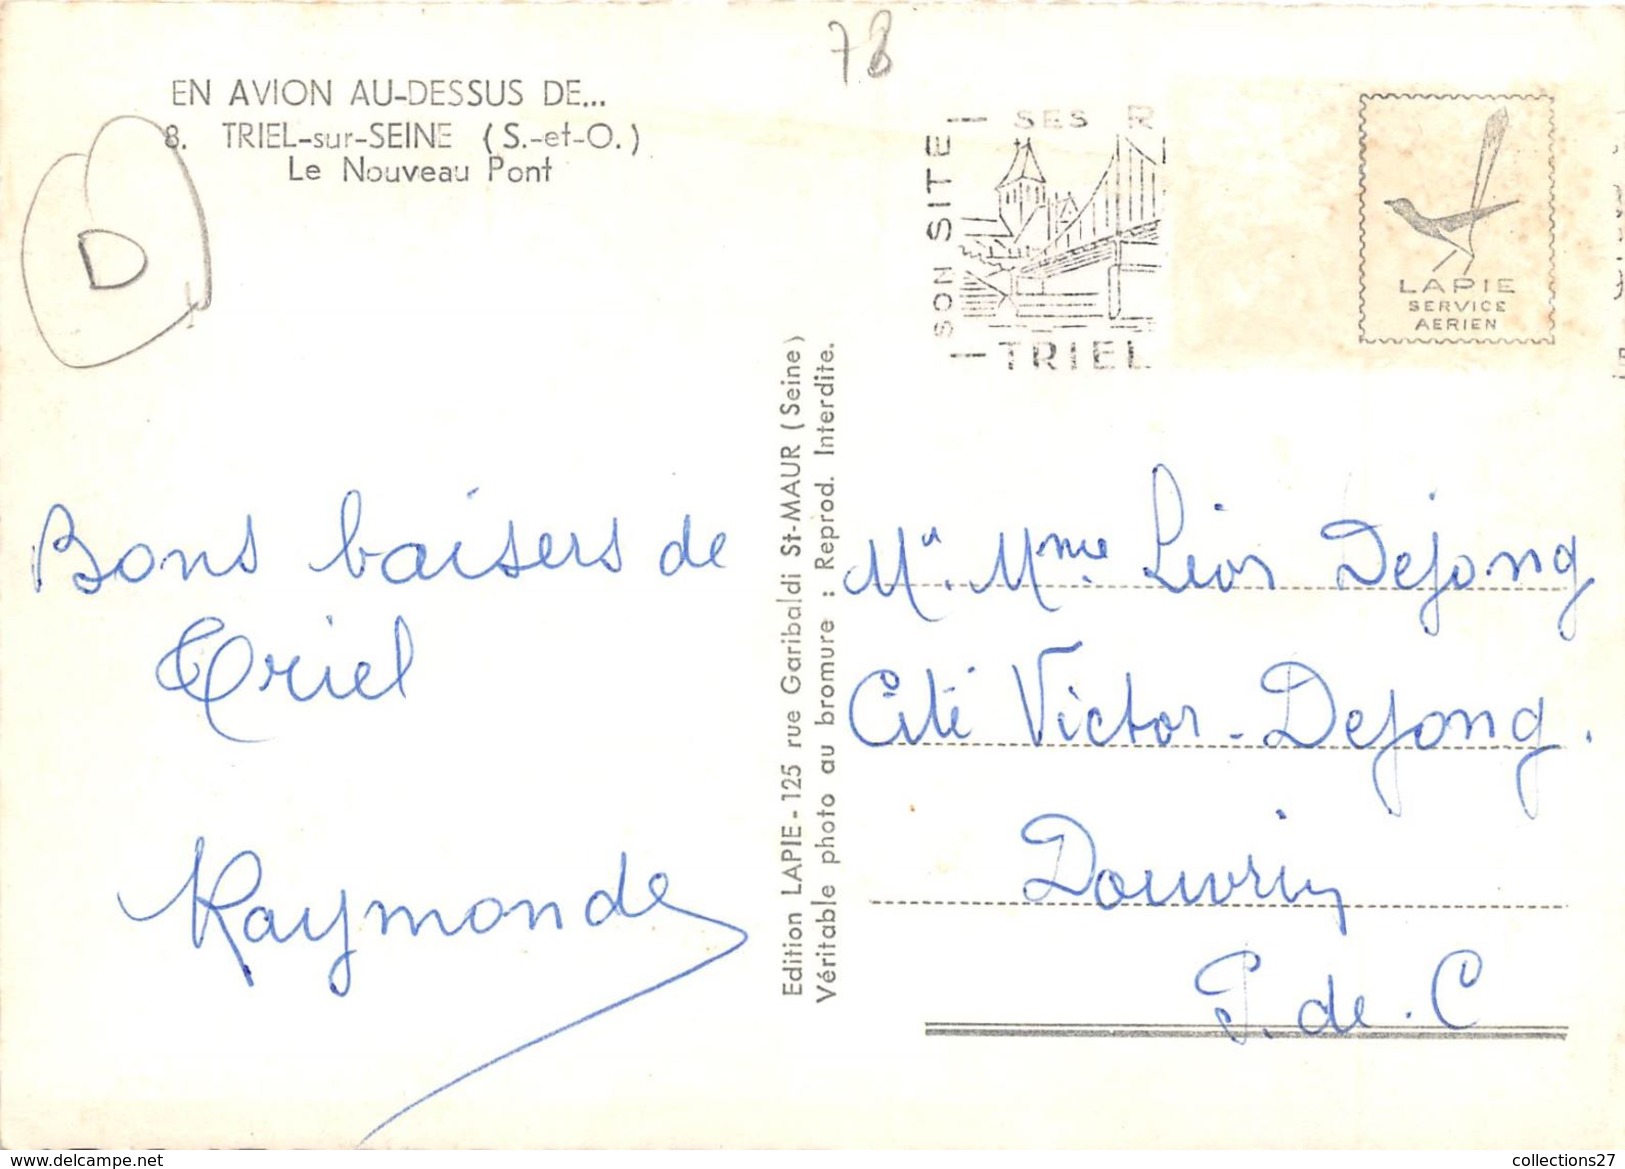 78
EN AVION AU-DESSUS DE...
8. TRIEL-sur-SEINE (S.-et-O.)
Le Nouveau Pont
D
SON SITE
SES R
TRIEL
LAPIE
SERVICE
AERIEN
Bons baisers de
Triel
Raymonde
Edition LAPIE - 125 rue Garibaldi St-MAUR (Seine)
Véritable photo au bromure : Reprod. Interdite.
Mr. Mme Léon Dejong
Cité Victor-Dejong.
Douvrin
P. de. C
www.delcampe.net
collections27